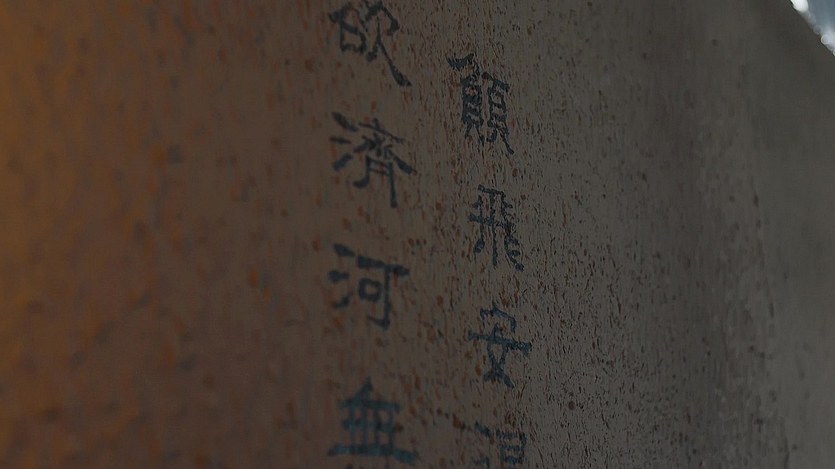 願飛安得
欲濟河無